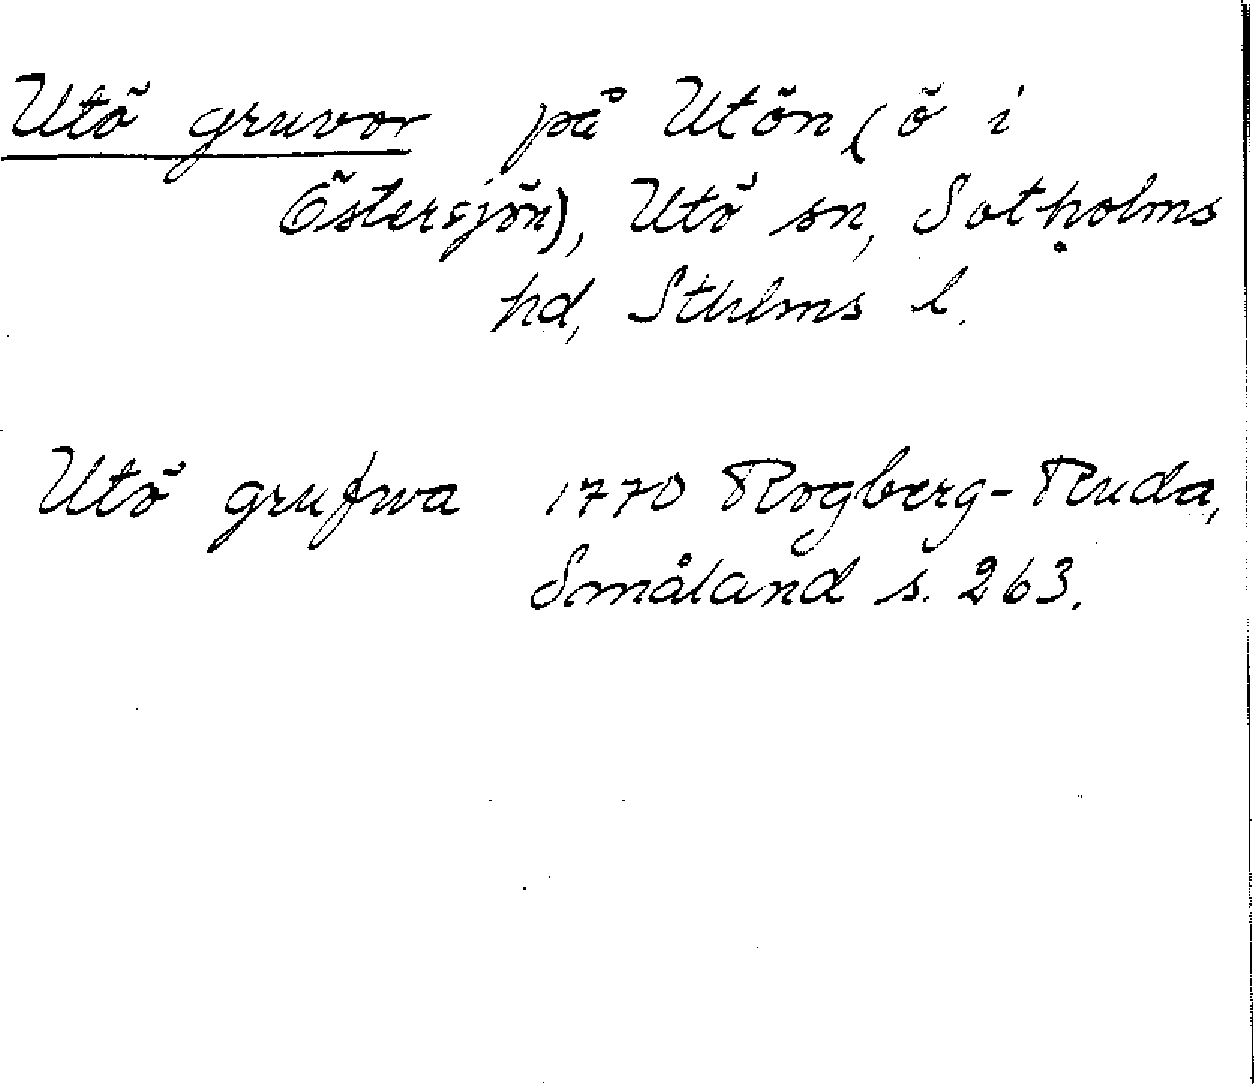 Utö gruvor på Utön (ö i
Östersjön), Utö sn, Sotholms
hd, Sthlms l.
Utö grufwa 1770 Rogberg-Ruda,
Småland s. 263.